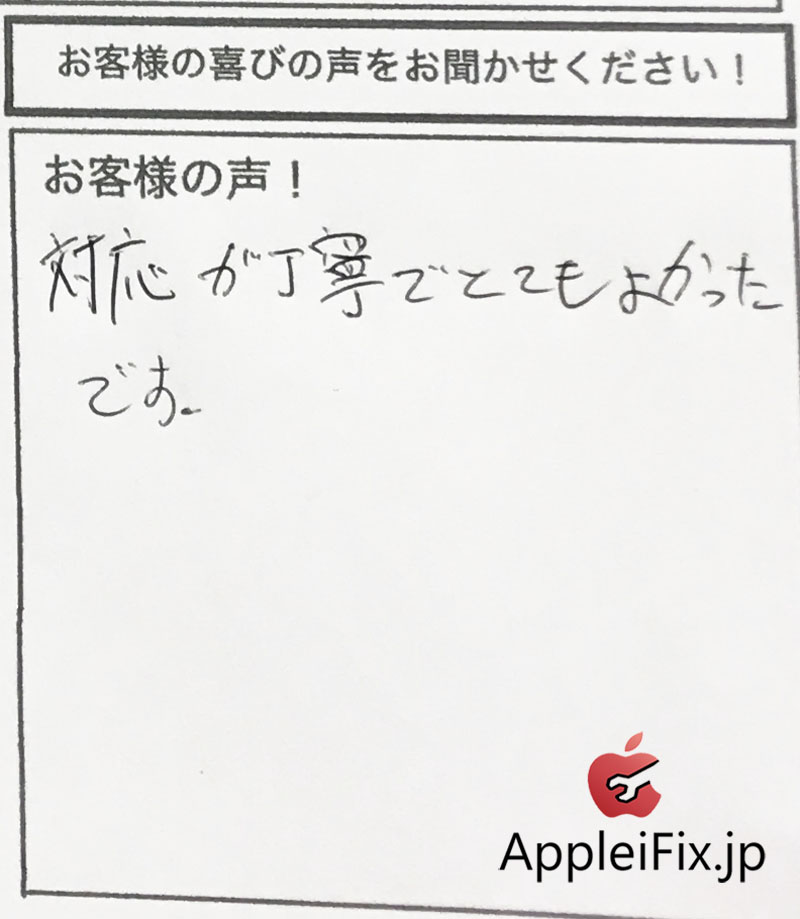 お客様の喜びの声をお聞かせください！
お客様の声！
対応が丁寧でとてもよかった
です。
AppleiFix.jp